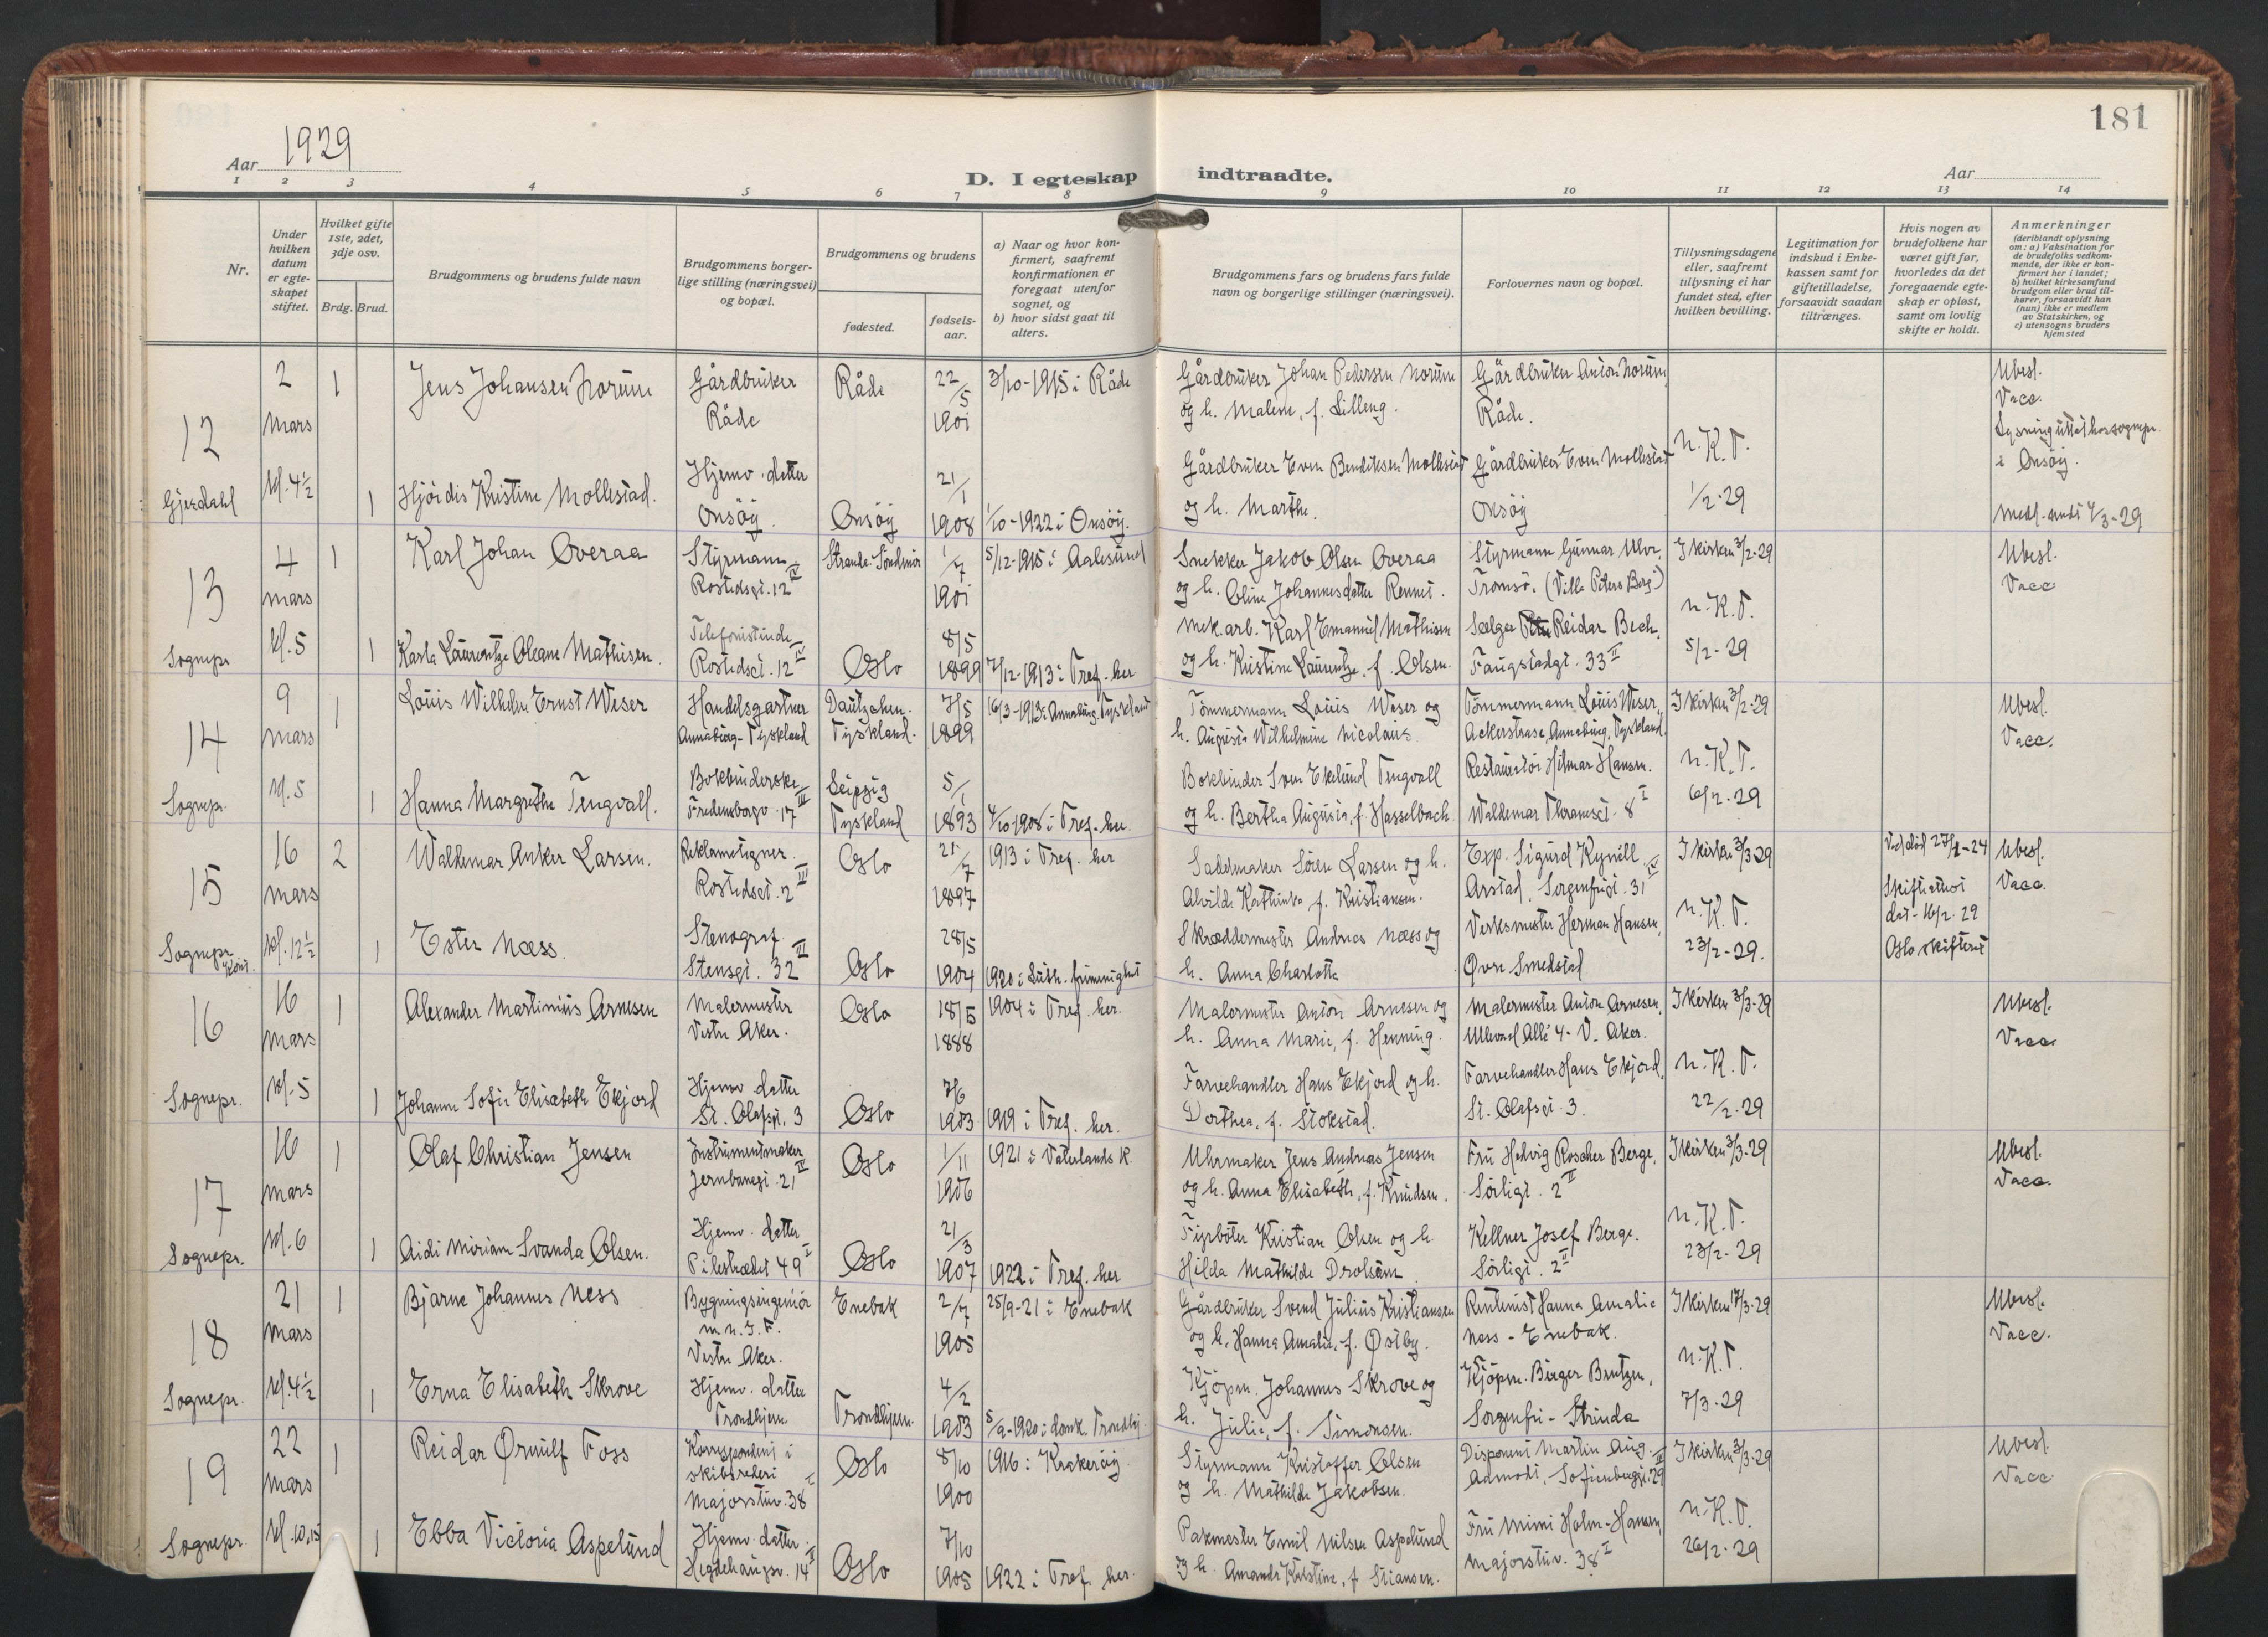 181
Aar 1929
D. I egteskap indtraadte.
Aar
1 2 3 4 5 6 7 8 9 10 11 12 13 14
Nr.
Under hvilken datum er egte-skapet stiftet.
Hvilket gifte 1ste, 2det, 3dje osv.
Brdg. Brud.
Brudgommens og brudens fulde navn
Brudgommens borger-lige stilling (næringsvei) og bopæl.
Brudgommens og brudens
fødested.
fødsels-aar.
a) Naar og hvor kon-firmert, saafremt konfirmationen er foregaat utenfor sognet, og
b) hvor sidst gaat til alters.
Brudgommens fars og brudens fars fulde navn og borgerlige stillinger (næringsvei).
Forlovernes navn og bopæl.
Tillysningsdagene eller, saafremt tillysning ei har fundet sted, efter hvilken bevilling.
Legitimation for indskud i Enke-kassen samt for giftetilladelse, forsaavidt saadan tiltrænges.
Hvis nogen av brudefolkene har været gift før, hvorledes da det foregaaende egte-skap er opløst, samt om lovlig skifte er holdt.
Anmerkninger
(deriblandt oplysning om: a) Vaksination for de brudefolks vedkom-mende, der ikke er kon-firmert her i landet; b) hvilket kirkesamfund brudgom eller brud til-hører, forsaavidt han (hun) ikke er medlem av Statskirken, og c) utensogns bruders hjemsted
12
Gjerdahl
2 Mars Kl. 4½
1
Jens Johansen Norum
Gårdbruker
Råde
Råde
22/5 1901
3/10-1915 i Råde
Gårdbruker Johan Pedersen Norum
og h. Malene, f. Lilleng.
Gårdbruker Anton Norum,
Råde.
N.K.T.
1/2-29
Ubesl.
Vacc.
Lysning uttat hos sognepr.
i Onsøy.
Medl. sendt 4/3-29
1
Hjördis Kristine Mollestad.
Hjemv. datter
Onsøy.
Onsøy
21/1 1908
1/10-1922 i Onsøy.
Gårdbruker Even Bendiksen Mollestad
og h. Marthe.
Gårdbruker Even Mollestad
Onsøy
13
Sognepr.
4 mars Kl. 5
1
Karl Johan Overaa
Styrmann
Rostedsgt. 12 IV
Strande Söndmör
1/7 1901
5/12-1915 i Aalesund
Snekker Jakob Olsen Overaa
og h. Oline Johannesdatter Remmet.
Styrmann Gunnar Ulvr.
Tromsö. (Villa Peters Borg)
I kirken 3/2-29
N.K.T.
5/2-29
Ubesl.
Vacc
1
Karla Laurentze Oleane Mathisen.
Telefonistinde
Rostedsgt. 12 IV
Oslo
8/5 1899
7/12-1913 i Tref. her
Mek. arb. Karl Emanuel Mathisen
og h. Kristine Laurentze, f. Olsen.
Sælger Reidar Bech,
Faugstadgt. 33 II
14
Sognepr.
9 mars Kl. 5
1
Louis Wilhelm Ernst Weser
Handelsgartner
Annaburg-Tyskland
Dautzchen.
Tyskland.
7/5 1899
16/3-1913 i Annaburg. Tyskland
Tömmermann Louis Weser og
h. Augusta Wilhelmine Nicolaus.
Tömmermann Louis Weser,
Ackerstrasse, Annaburg, Tyskland.
I kirken 3/2-29
N.K.T.
6/2-29
Ubesl.
Vacc.
1
Hanna Margrethe Tengvall.
Bokbinderske
Fredensborgv. 17 III
Leipzig
Tyskland
5/1 1893
4/10-1908 i Tref. her.
Bokbinder Sven Ekelund Tengvall
og h. Bertha Augusta, f. Hasselbach.
Restauratör Hilmar Hansen.
Waldemar Thranesgt. 8 I
15
Sognepr.
16 mars Kl. 12½
2
Waldemar Anker Larsen.
Reklametegner.
Rostedsgt. 2 III
Oslo
21/7 1897
1913 i Tref. her
Sadelmaker Sören Larsen og h.
Alvilde Kathinka f. Kristiansen.
Exp. Sigurd Kynell
Arstad, Sorgenfrigt. 31 IV
I kirken 3/3-29
N.K.T.
23/2-29.
Skifteattest
dat - 16/2-29
Oslo skifterett
Ubesl.
Vacc.
1
Ester Næss.
Stenograf.
Stensgt. 32 II
Oslo
28/5 1904
1920 i Luth. frimenighet
Skræddermester Andreas Næss og
h. Anna Charlotte
Verksmester Herman Hansen,
Øvre Smedstad
16
Sognepr.
16 mars Kl. 5
1
Alexander Martinius Arnesen
Malermester
Vestre Aker.
Oslo
18/5 1888
1904 i Tref. her.
Malermester Anton Arnesen og
h. Anna Marie, f. Henning.
Malermester Anton Arnesen,
Ullevaal Allé 4 - V. Aker.
I kirken 3/3-29
N.K.T.
22/2-29
Ubesl.
Vacc
1
Johanne Sofie Elisabeth Ekjord
Hjemv. datter
St. Olafsgt. 3
Oslo
7/6 1903
1919 i Tref. her.
Farvehandler Hans Ekjord og h.
Dorthea, f. Stokstad.
Farvehandler Hans Ekjord,
St. Olafsgt. 3.
17
Sognepr.
16 mars Kl. 6
1
Olaf Christian Jensen
Instrumentmaker
Jernbanegt. 21 IV
Oslo
1/11 1906
1921 i Vaterlands K.
Uhrmaker Jens Andreas Jensen
og h. Anna Elisabeth, f. Knudsen.
Fru Hedvig Roscher Berge,
Sörligt. 2 II
I kirken 3/3-29
N.K.T.
23/2-29
Ubesl.
Vacc.
1
Aidi Miriam Svanda Olsen.
Hjemv. datter
Pilestrædet 49 I
Oslo
21/3 1907
1922 i Tref. her
Fyrböter Kristian Olsen og h.
Hilda Mathilde Drolsum
Kellner Josef Berge.
Sörligt. 2 II
18
Sognepr.
21 mars Kl. 4½
1
Bjarne Johannes Ness
Bygningsingeniör
m.n.I.F.
Vestre Aker.
Enebak
2/7 1905
25/9-21 i Enebak
Gårdbruker Svend Julius Kristiansen
og h. Hanna Amalie, f. Østby.
Rentenist Hanna Amalie
Ness - Enebak.
I kirken 17/3-29
N.K.T.
7/3-29
Ubesl.
Vacc.
1
Erna Elisabeth Skrove
Hjemv. datter
Trondhjem
Trondhjem.
4/2 1903
5/9-1920 i domk. Trondhj.
Kjöpm. Johannes Skrove og
h. Julie, f. Simonsen.
Kjöpm. Birger Berntzen,
Sorgenfri - Strinda
19
Sognepr.
22 mars Kl. 10,15
1
Reidar Ørnulf Foss
Korrespondent i
skibsrederi
Majorstuv. 38 I
Oslo
8/10 1900
1916 i Krakeröy.
Styrmann Kristoffer Olsen
og h. Mathilde Jakobsen.
Disponent Martin Aug.
Aamodt, Sofienberggt. 29 II
I kirken 3/3-29
N.K.T.
26/2-29
Ubesl.
Vacc
1
Ebba Victoria Aspelund
Hjemv. datter
Hegdehaugsv. 14 II
Oslo
7/10 1905
1922 i Tref. her.
Pakmester Emil Nilsen Aspelund
og h. Amanda Kristine, f Stiansen.
Fru Mimi Holm-Hansen,
Majorstuv. 38 I